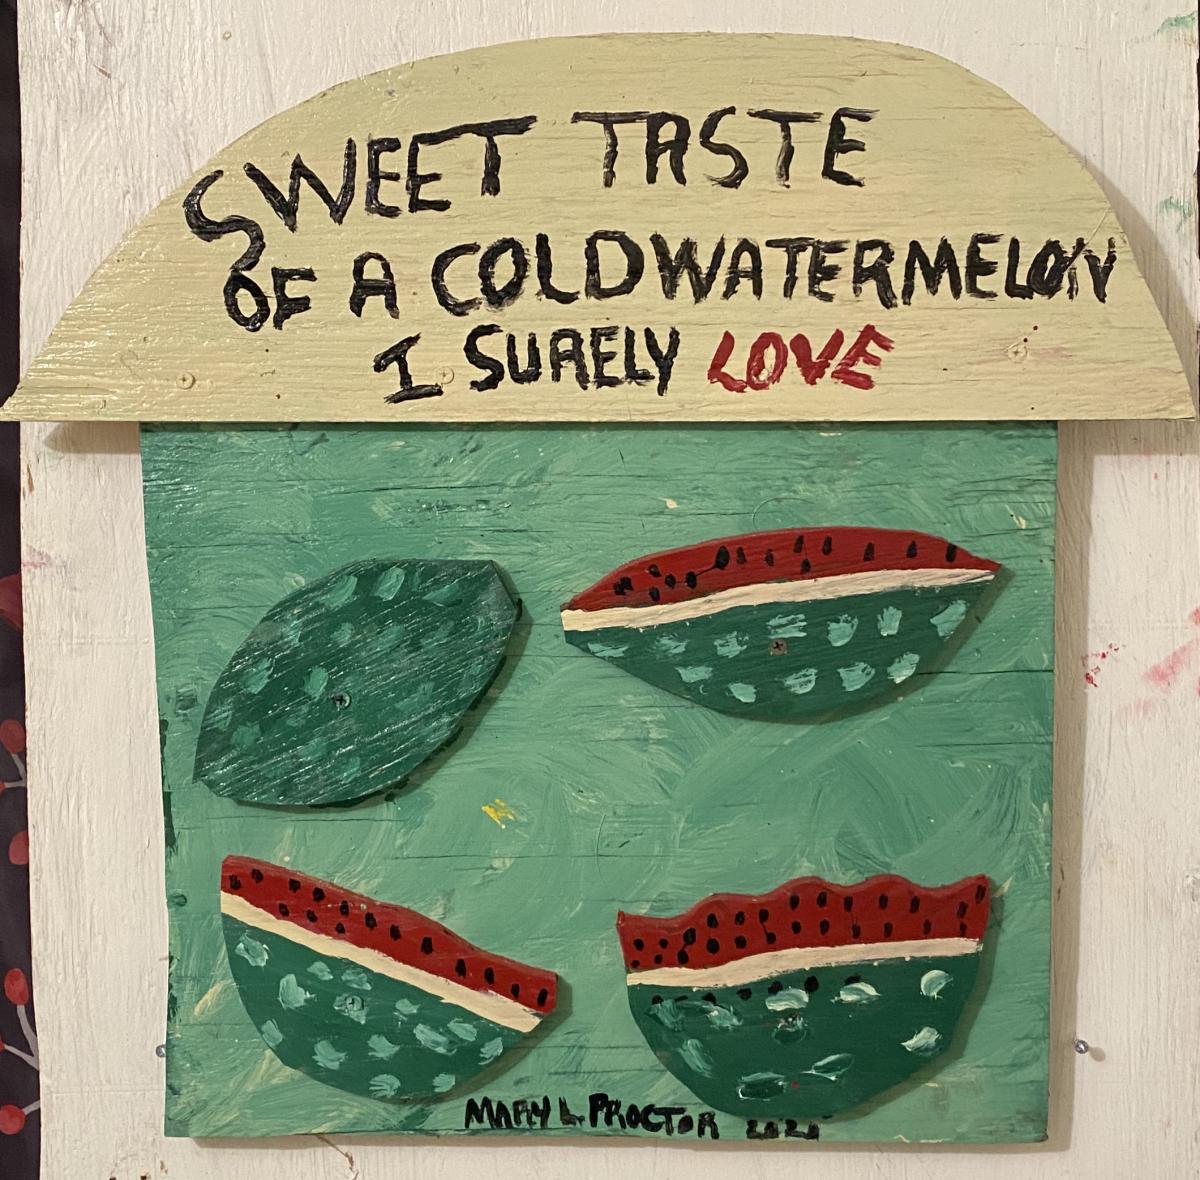 SWEET TASTE
OF A COLD WATERMELON
I SURELY LOVE
MARY L. PROCTOR 2020